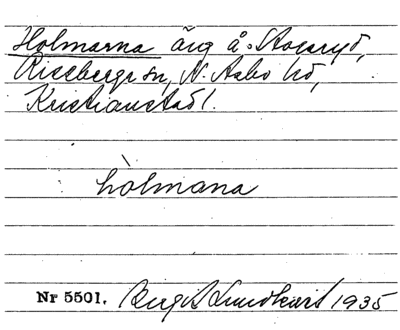 Holmarna äng å Stocaryd,
Riseberga sn, N. Åsbo hd,
Kristianstad l.
hòlmana
Nr 5501. Birgit Lundkvist 1935